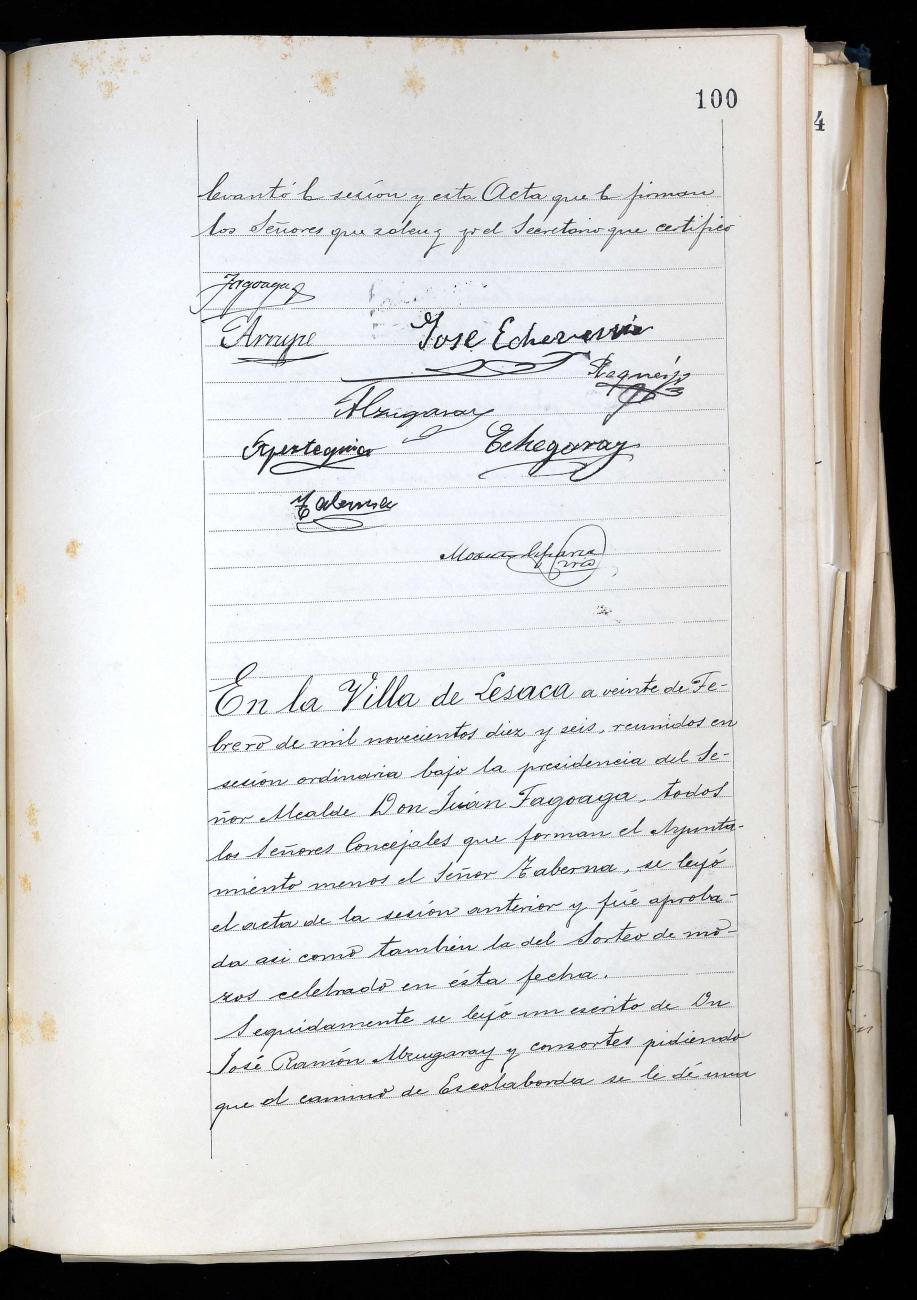 100
4
levantó la sesión y esta Acta que la firman
los Señores que saben y yo el Secretario que certifico
Fagoaga
Arrupe
José Echeverria
Alzugaray
Echegaray
Taberna
En la Villa de Lesaca a veinte de Fe-
brero de mil novecientos diez y seis, reunidos en
sesión ordinaria bajo la presidencia del Se-
ñor Alcalde Don Juán Fagoaga, todos
los Señores Concejales que forman el Ayunta-
miento menos el Señor Taberna, se leyó
el acta de la sesión anterior y fué aproba-
da asi como también la del Sorteo de mo-
zos celebrado en ésta fecha.
Seguidamente se leyó un escrito de Dn
José Ramón Alzugaray y consortes pidiendo
que el camino de Escolaborda se le dé una